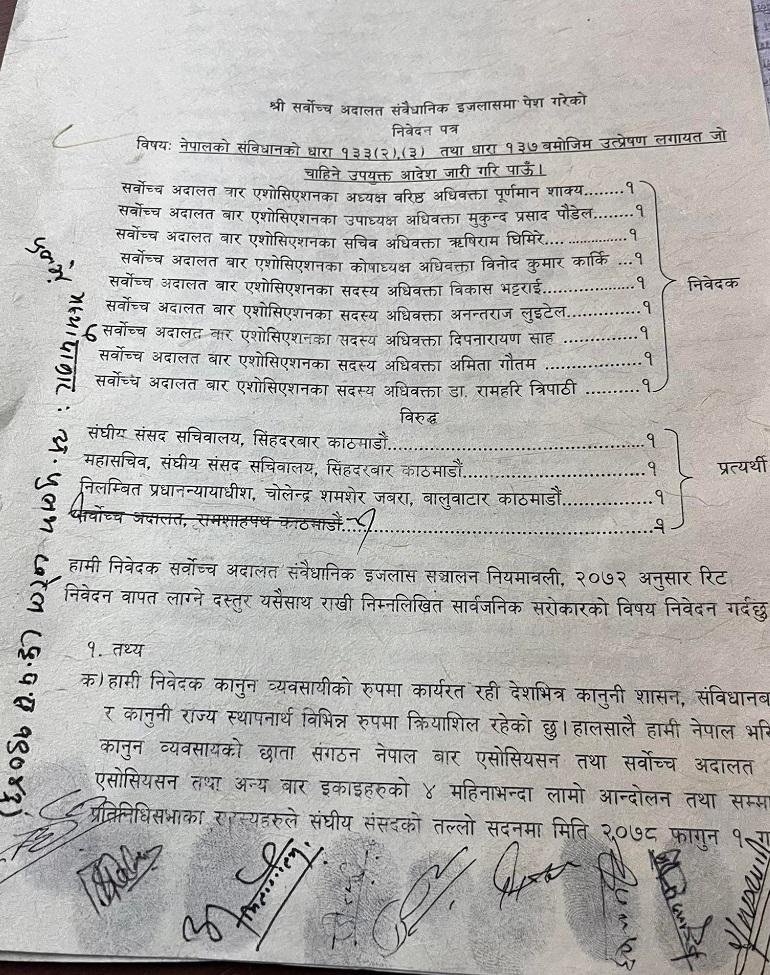 श्री सर्वोच्च अदालत संवैधानिक इजलासमा पेश गरेको
निवेदन पत्र
विषयः नेपालको संविधानको धारा १३३(२),(३) तथा धारा १३७ बमोजिम उत्प्रेषण लगायत जो
चाहिने उपयुक्त आदेश जारी गरि पाऊँ।
सर्वोच्च अदालत वार एशोसिएशनका अध्यक्ष वरिष्ठ अधिवक्ता पूर्णमान शाक्य........१
सर्वोच्च अदालत बार एशोसिएशनका उपाध्यक्ष अधिवक्ता मुकुन्द प्रसाद पौडेल........१
सर्वोच्च अदालत बार एशोसिएशनका सचिव अधिवक्ता ऋषिराम घिमिरे.... ................१
सर्वोच्च अदालत बार एशोसिएशनका कोषाध्यक्ष अधिवक्ता विनोद कुमार कार्कि ...१
सर्वोच्च अदालत बार एशोसिएशनका सदस्य अधिवक्ता विकास भट्टराई.....................१
सर्वोच्च अदालत बार एशोसिएशनका सदस्य अधिवक्ता अनन्तराज लुइटेल.................१
सर्वोच्च अदालत बार एशोसिएशनका सदस्य अधिवक्ता दिपनारायण साह ................१
सर्वोच्च अदालत बार एशोसिएशनका सदस्य अधिवक्ता अमिता गौतम ...................१
सर्वोच्च अदालत बार एशोसिएशनका सदस्य अधिवक्ता डा. रामहरि त्रिपाठी ..........१
निवेदक
विरुद्ध
संघीय संसद सचिवालय, सिंहदरबार काठमाडौं.............................................१
महासचिव, संघीय संसद सचिवालय, सिंहदरबार काठमाडौं................................१
निलम्वित प्रधानन्यायाधीश, चोलेन्द्र शमशेर जबरा, बालुवाटार काठमाडौं................१
सर्वोच्च अदालत, रामशाहपथ काठमाडौं......................................................१
प्रत्यर्थी
हामी निवेदक सर्वोच्च अदालत संवैधानिक इजलास सञ्चालन नियमावली, २०७२ अनुसार रिट
निवेदन वापत लाग्ने दस्तुर यसैसाथ राखी निम्नलिखित सार्वजनिक सरोकारको विषय निवेदन गर्दछु
१. तथ्य
क) हामी निवेदक कानुन व्यवसायीको रुपमा कार्यरत रही देशभित्र कानुनी शासन, संविधानब
र कानुनी राज्य स्थापनार्थ विभिन्न रुपमा क्रियाशिल रहेको छु। हालसालै हामी नेपाल भरि
कानुन व्यवसायको छाता संगठन नेपाल बार एसोसियसन तथा सर्वोच्च अदालत
एसोसियसन तथा अन्य बार इकाइहरुको ४ महिनाभन्दा लामो आन्दोलन तथा सम्मा
प्रतिनिधिसभाका सदस्यहरुले संघीय संसदको तल्लो सदनमा मिति २०७८ फागुन १ ग